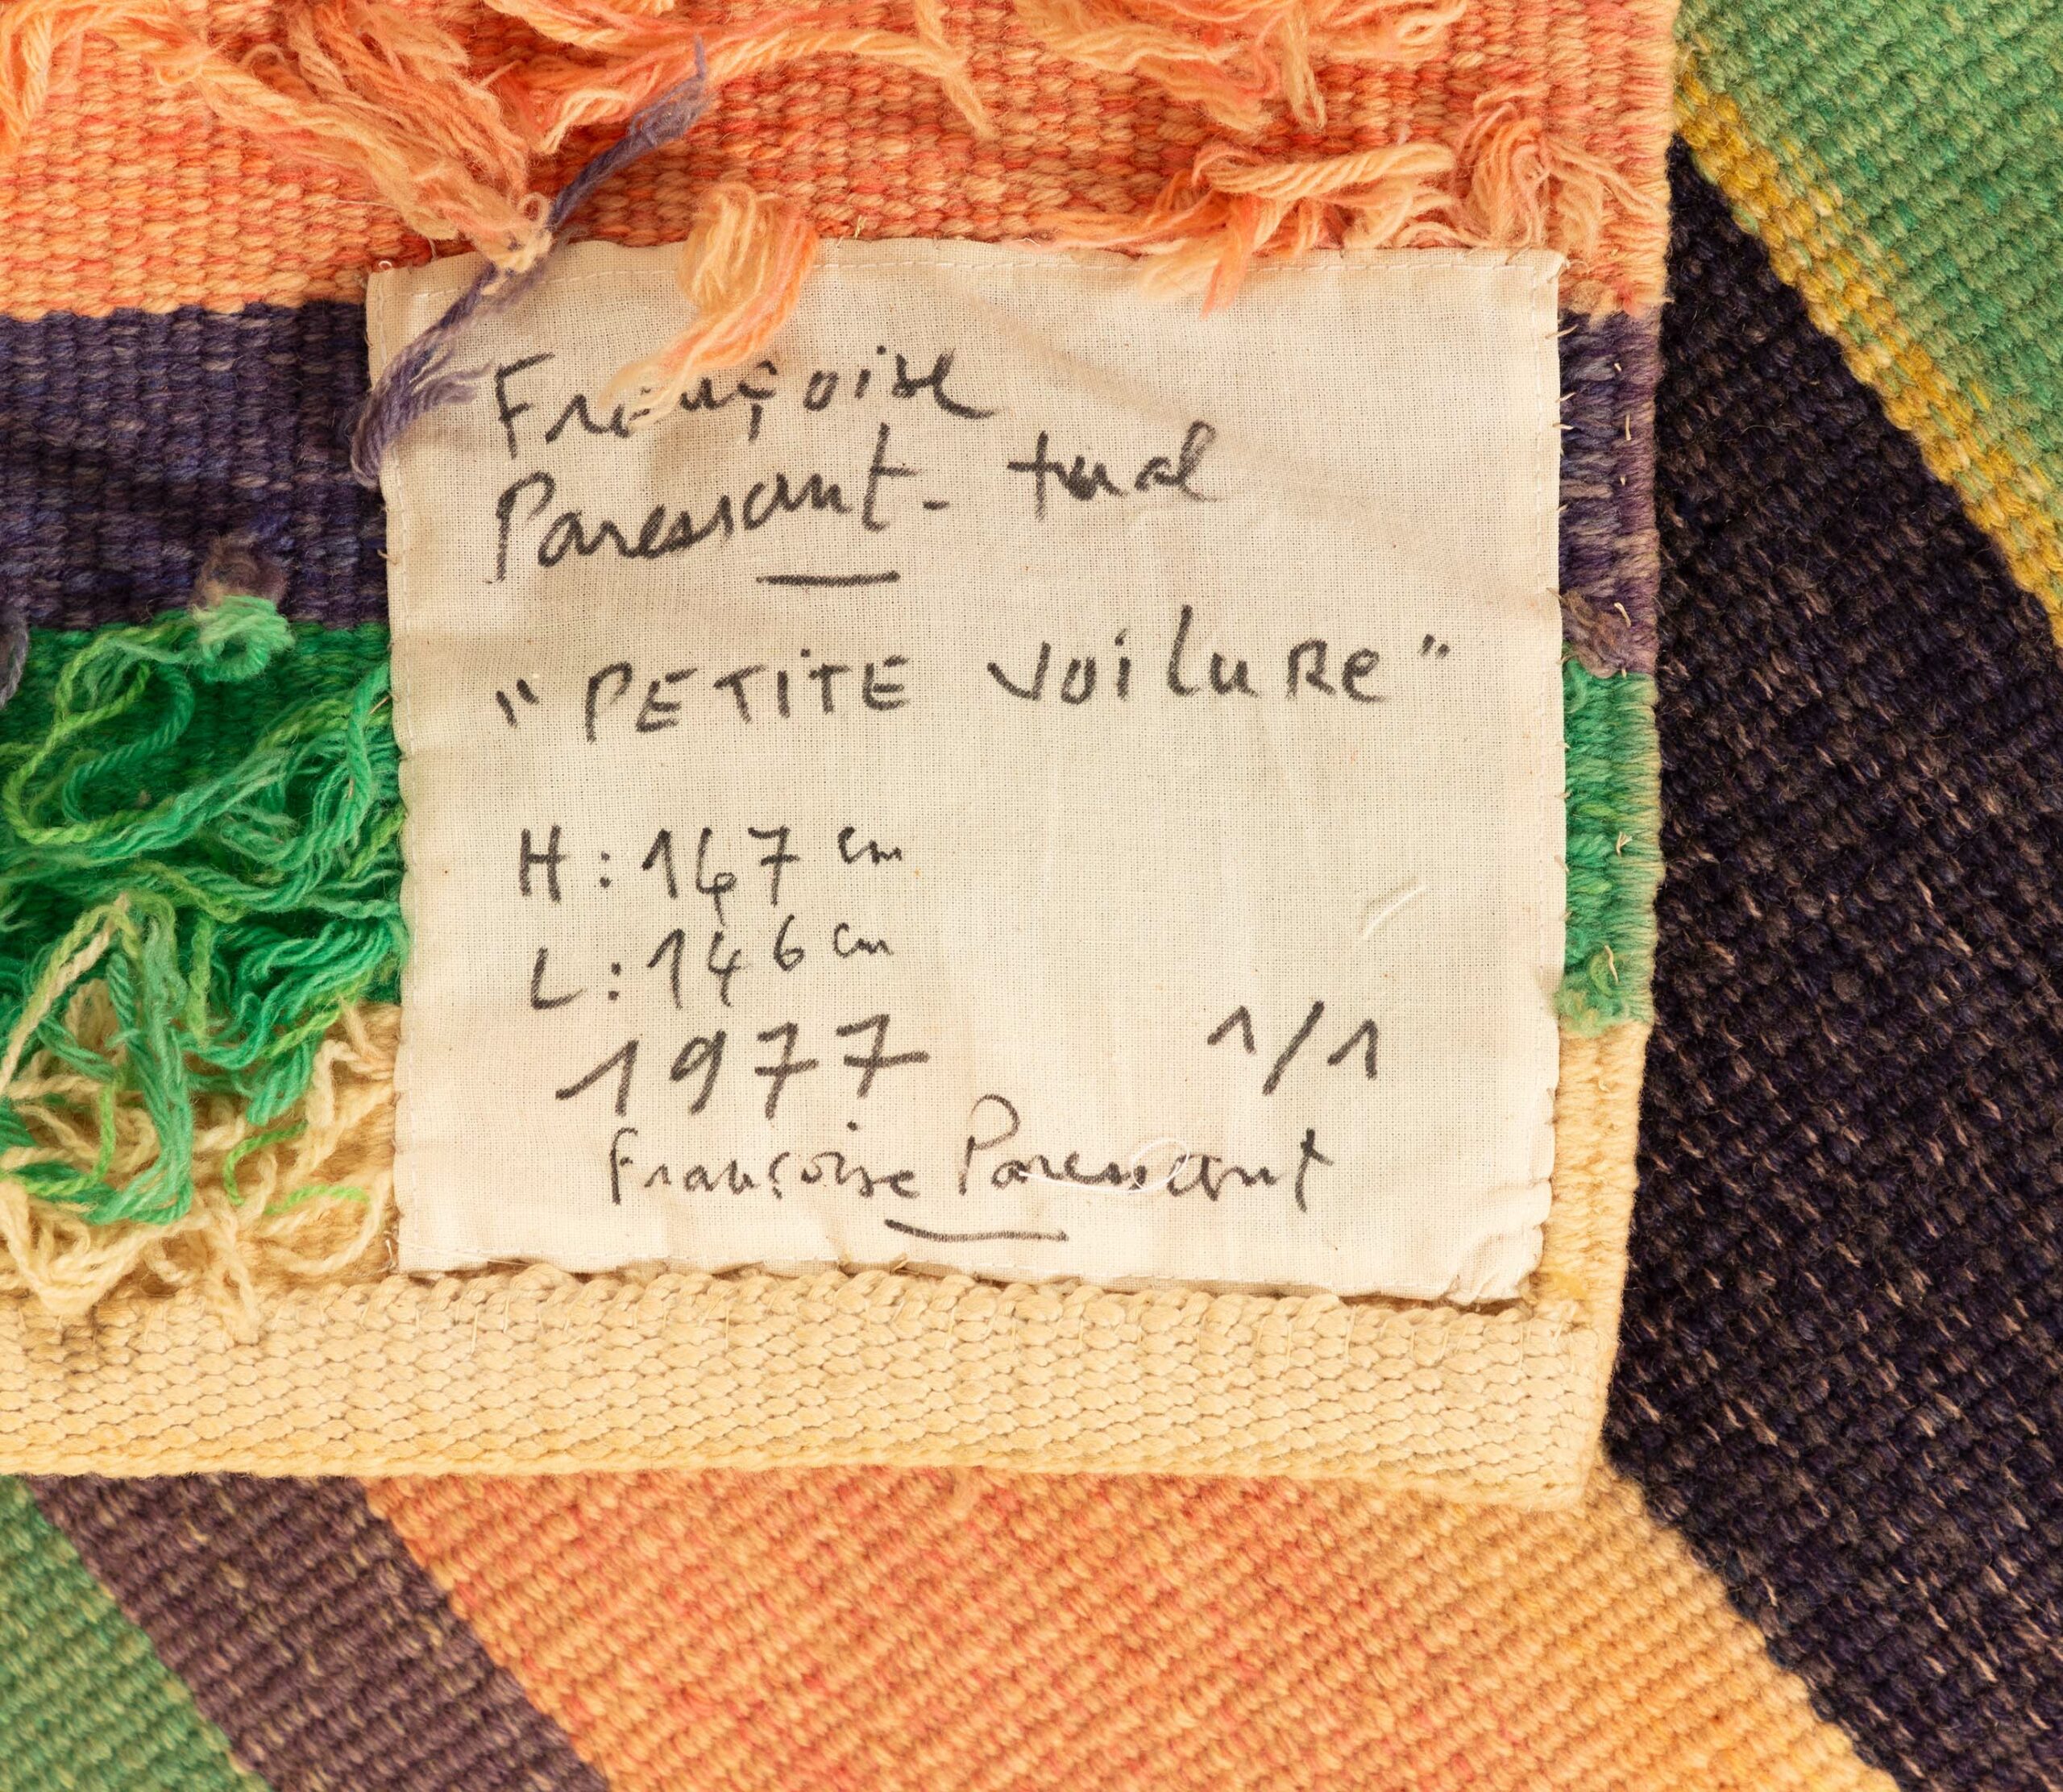 Françoise
Paressant-tual
"PETITE VOILURE"
H: 147 cm
L: 146 cm
1977 1/1
Françoise Paressant